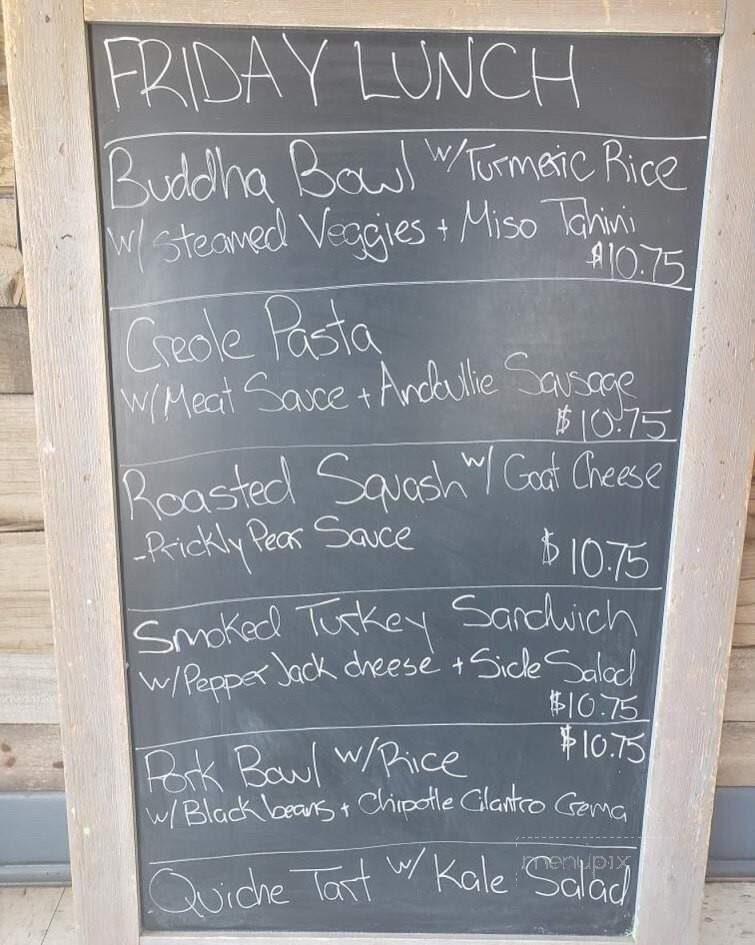 FRIDAY LUNCH
Buddha Bowl w/Turmeric Rice
w/ Steamed Veggies + Miso Tahini
$10.75
Creole Pasta
w/Meat Sauce + Andoullie Sausage
$10.75
Roasted Squash w/ Goat Cheese
-Prickly Pear Sauce $10.75
Smoked Turkey Sandwich
w/Pepper Jack cheese + Side Salad
$10.75
$10.75
Pork Bowl w/Rice
w/Black beans + Chipotle Cilantro Crema
Quiche Tart w/ Kale Salad
menupix